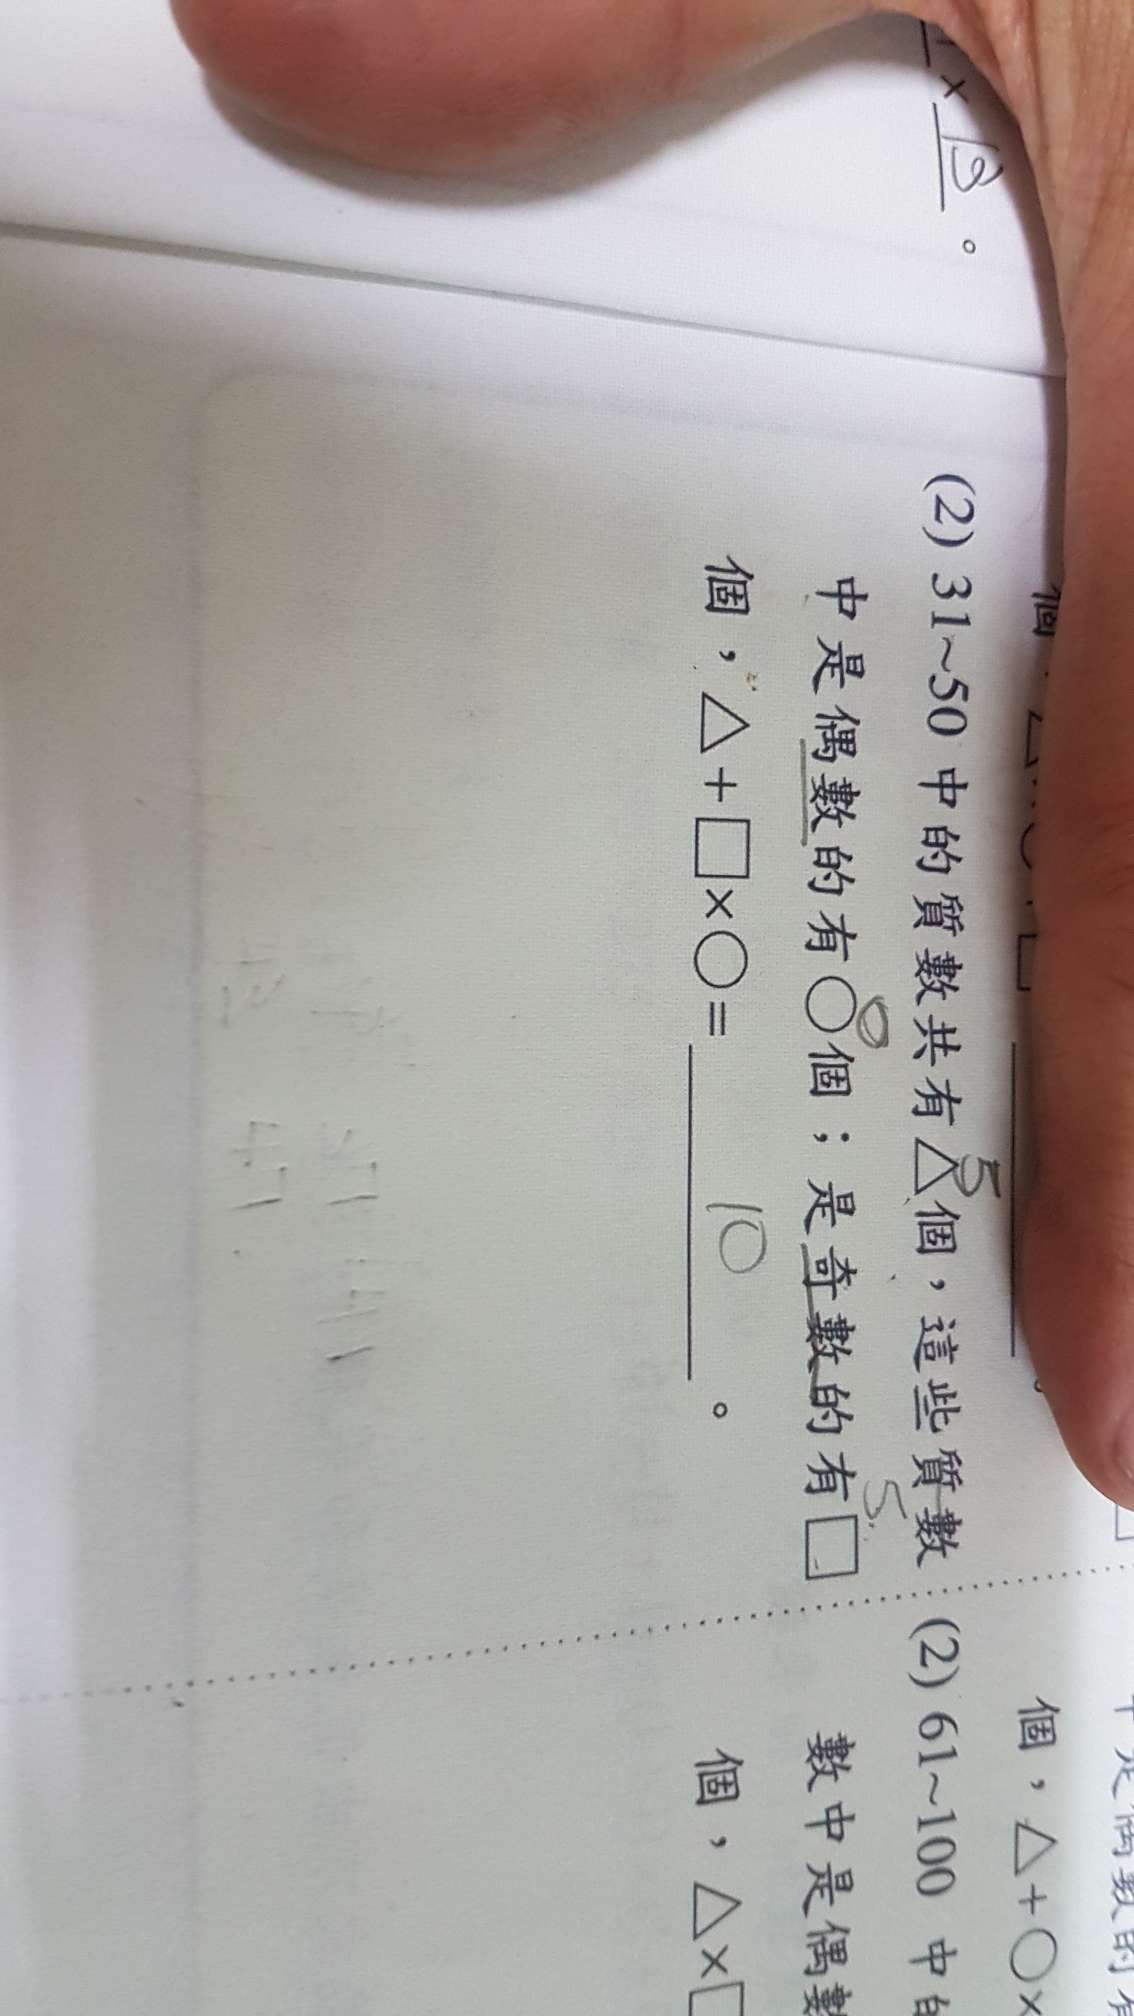 × 13 。
(2) 31~50 中的質數共有△個，這些質數
5
中是偶數的有○個；是奇數的有□
0 5
個，△+□×○= 10 。
37 41
43 47
個，△+○×
(2) 61~100 中的
數中是偶數
個，△×□